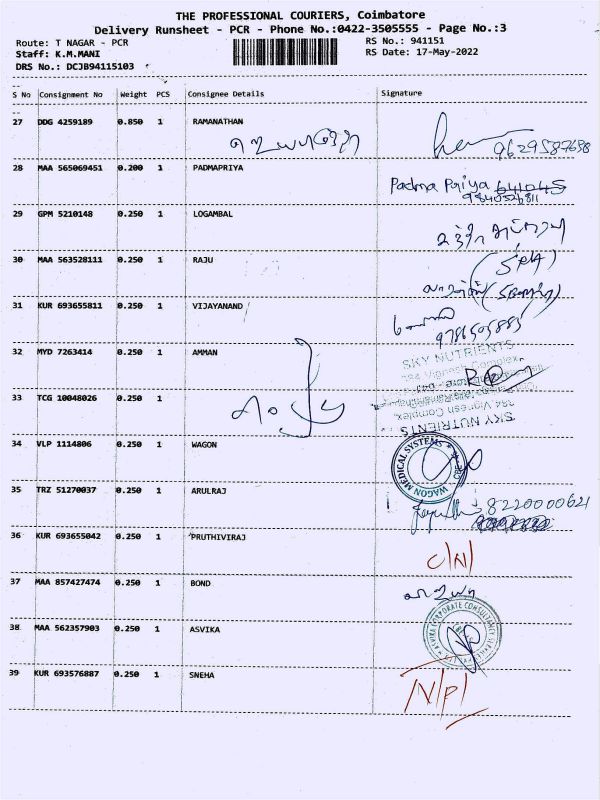 THE PROFESSIONAL COURIERS, Coimbatore
Delivery Runsheet - PCR - Phone No.:0422-3505555 - Page No.:3
Route: T NAGAR - PCR RS No.: 941151
Staff: K.M.MANI RS Date: 17-May-2022
DRS No.: DCJB94115103
S No Consignment No Weight PCS Consignee Details Signature
27 DDG 4259189 0.850 1 RAMANATHAN
9629587698
28 MAA 565069451 0.200 1 PADMAPRIYA
Padma Priya 64045
9840526811
29 GPM 5210148 0.250 1 LOGAMBAL
30 MAA 563528111 0.250 1 RAJU
31 KUR 693655811 0.250 1 VIJAYANAND
9786505885
32 MYD 7263414 0.250 1 AMMAN
SKY NUTRIENTS
33 TCG 10048026 0.250 1
384, Vignesh Complex,
SKY NUTRIENTS
34 VLP 1114806 0.250 1 WAGON
WAGON MEDICAL SYSTEMS CBE
35 TRZ 51270037 0.250 1 ARULRAJ
8220000621
36 KUR 693655042 0.250 1 PRUTHIVIRAJ
C/N/
37 MAA 857427474 0.250 1 BOND
38 MAA 562357903 0.250 1 ASVIKA
ASVIKA CORPORATE CONSULTANCY
39 KUR 693576887 0.250 1 SNEHA
N/P/